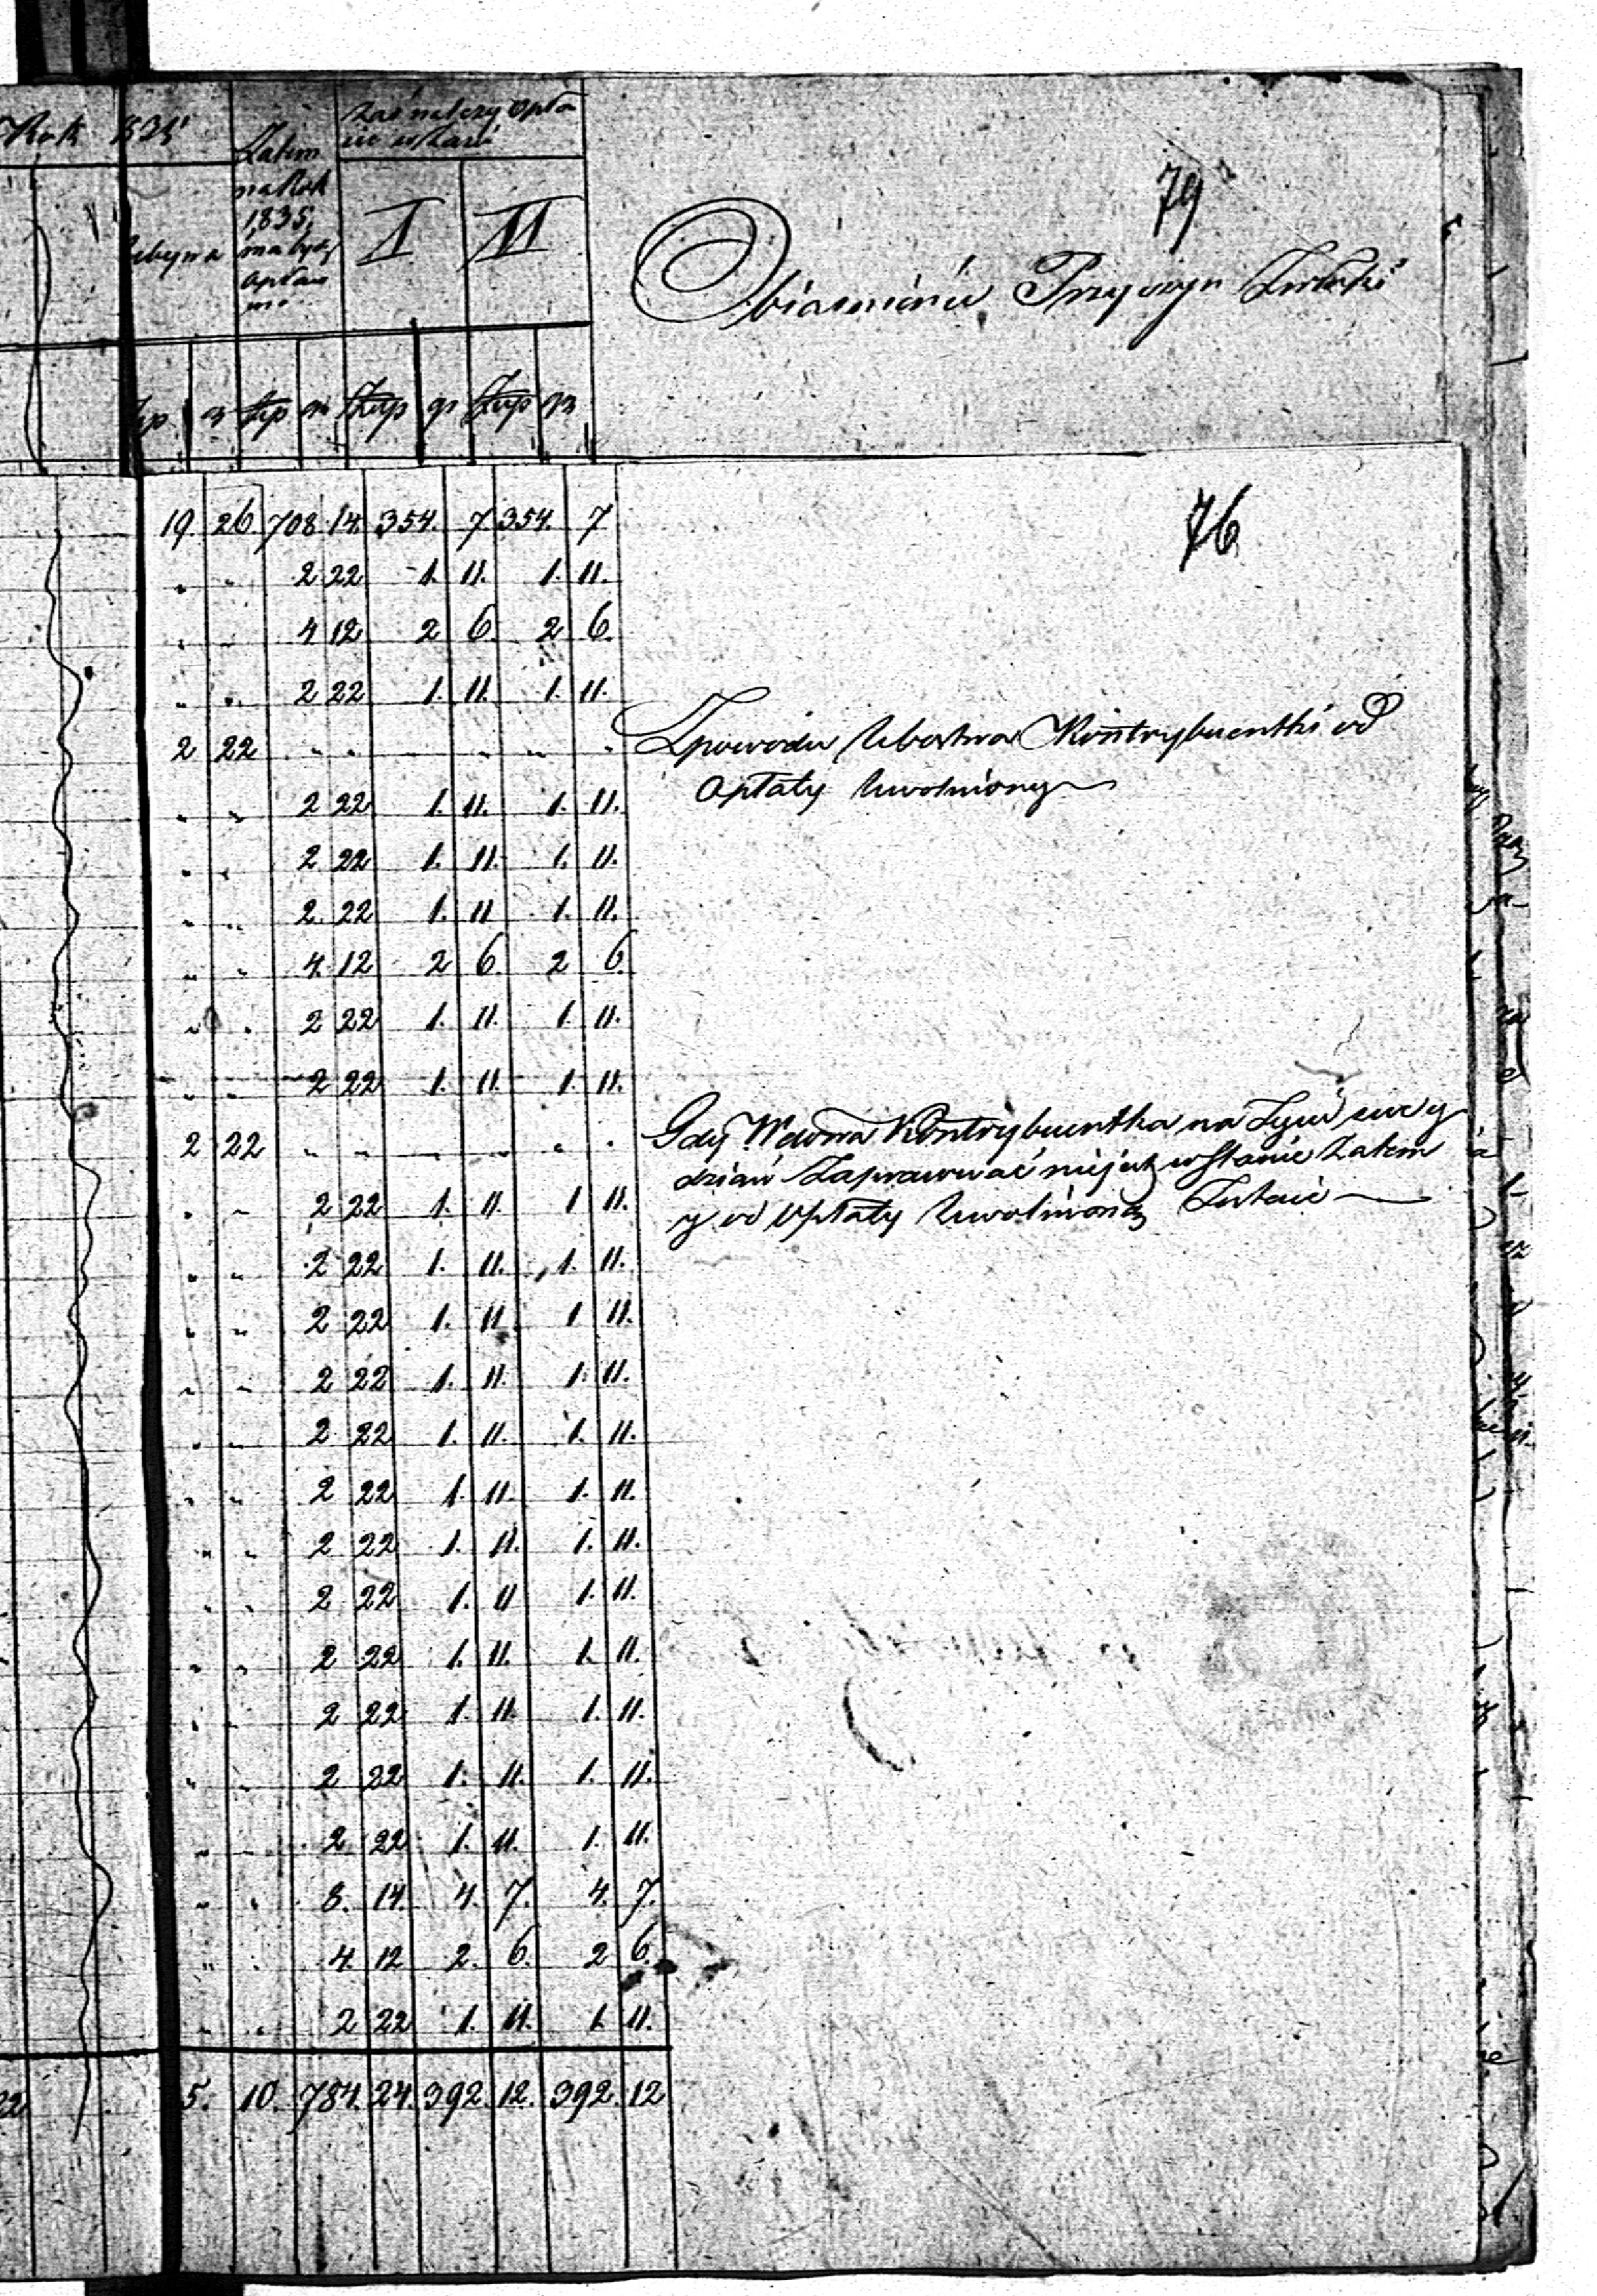 Rok 1835
ubywa
Zatem
na Rok
1835,
ma bydź
opłaco
no
Zaś należy opła
cić w Racie
I II
79
Obiasnienie Przyczyn
Złp gr Złp gr Złp gr Złp gr
76
19. 26. 708. 14. 354. 7 354. 7
" " 2 22 1. 11. 1. 11.
" " 4 12 2 6. 2 6.
" " 2 22 1. 11. 1. 11.
2 22 " " " " " "
Zpowodu Ubostwa Kontrybuentki od
Opłaty Uwolniony
" " 2 22 1. 11. 1. 11.
" " 2 22 1. 11. 1. 11.
" " 2. 22 1. 11 1. 11.
" " 4. 12 2 6. 2 6.
" " 2 22 1. 11. 1. 11.
" " 2 22 1. 11. 1. 11.
2 22 " " " " " "
Gdy Wdowa Kontrybuentka na Życie swe y
zapracować niejest wstanie Zatem
y od Opłaty Uwolnioną Zostaie
" " 2 22 1. 11. 1 11.
" " 2 22 1. 11. 1. 11.
" " 2 22 1. 11. 1 11.
" " 2 22 1. 11. 1. 11.
" " 2. 22 1. 11. 1. 11.
" " 2 22 1. 11. 1. 11.
" " 2 22 1. 11. 1. 11.
" " 2 22 1. 11 1. 11.
" " 2 22 1. 11. 1. 11.
" " 2 22 1. 11. 1. 11.
" " 2 22 1. 11. 1. 11.
" " 2 22 1. 11. 1. 11.
" " 8. 14. 4. 7. 4. 7.
" " 4. 12 2. 6. 2 6.
" " 2 22 1. 11. 1. 11.
5. 10. 784. 24. 392. 12. 392. 12